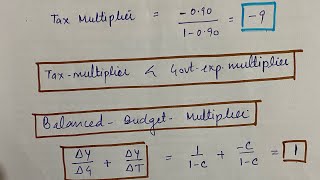 Tax Multiplier = -0.90 / 1-0.90 = -9
Tax-multiplier < Govt-exp. multiplier
Balanced-Budget-Multiplier
ΔY/ΔG + ΔY/ΔT = 1/1-c + -c/1-c = 1